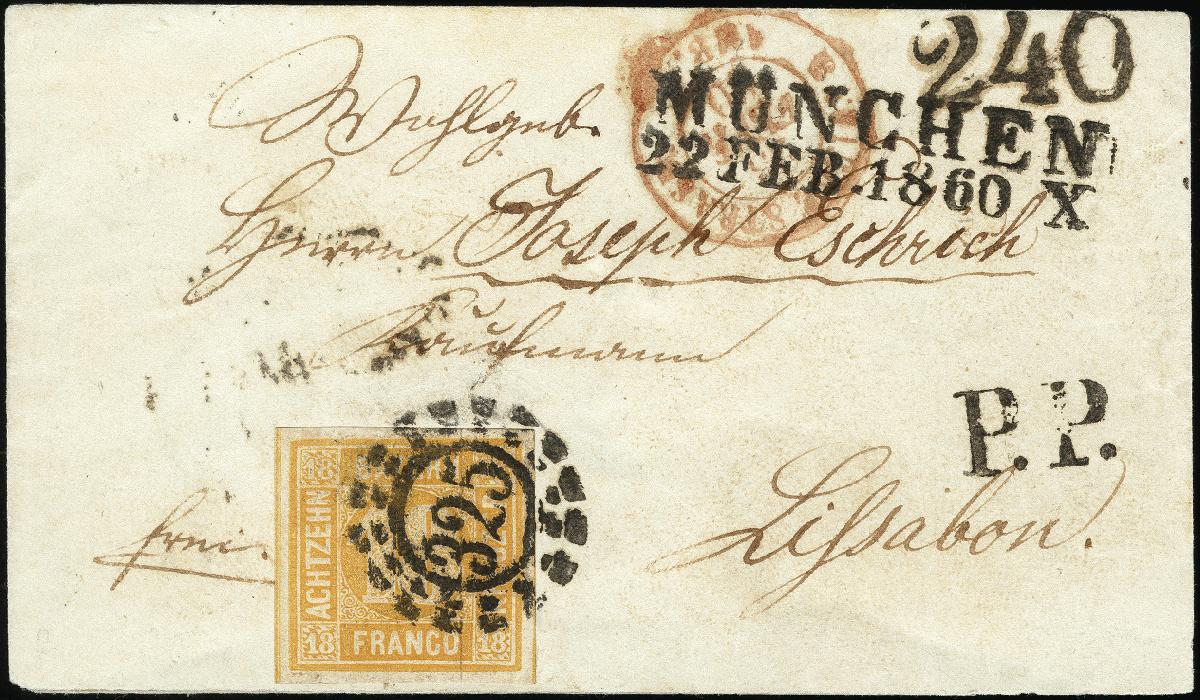 240
MÜNCHEN
22 FEB. 1860 X
Wohlgeb.
Herrn Joseph Eschrich
Kaufmann
P.P.
Lissabon.
frei.
325
18
ACHTZEHN
18 FRANCO 18